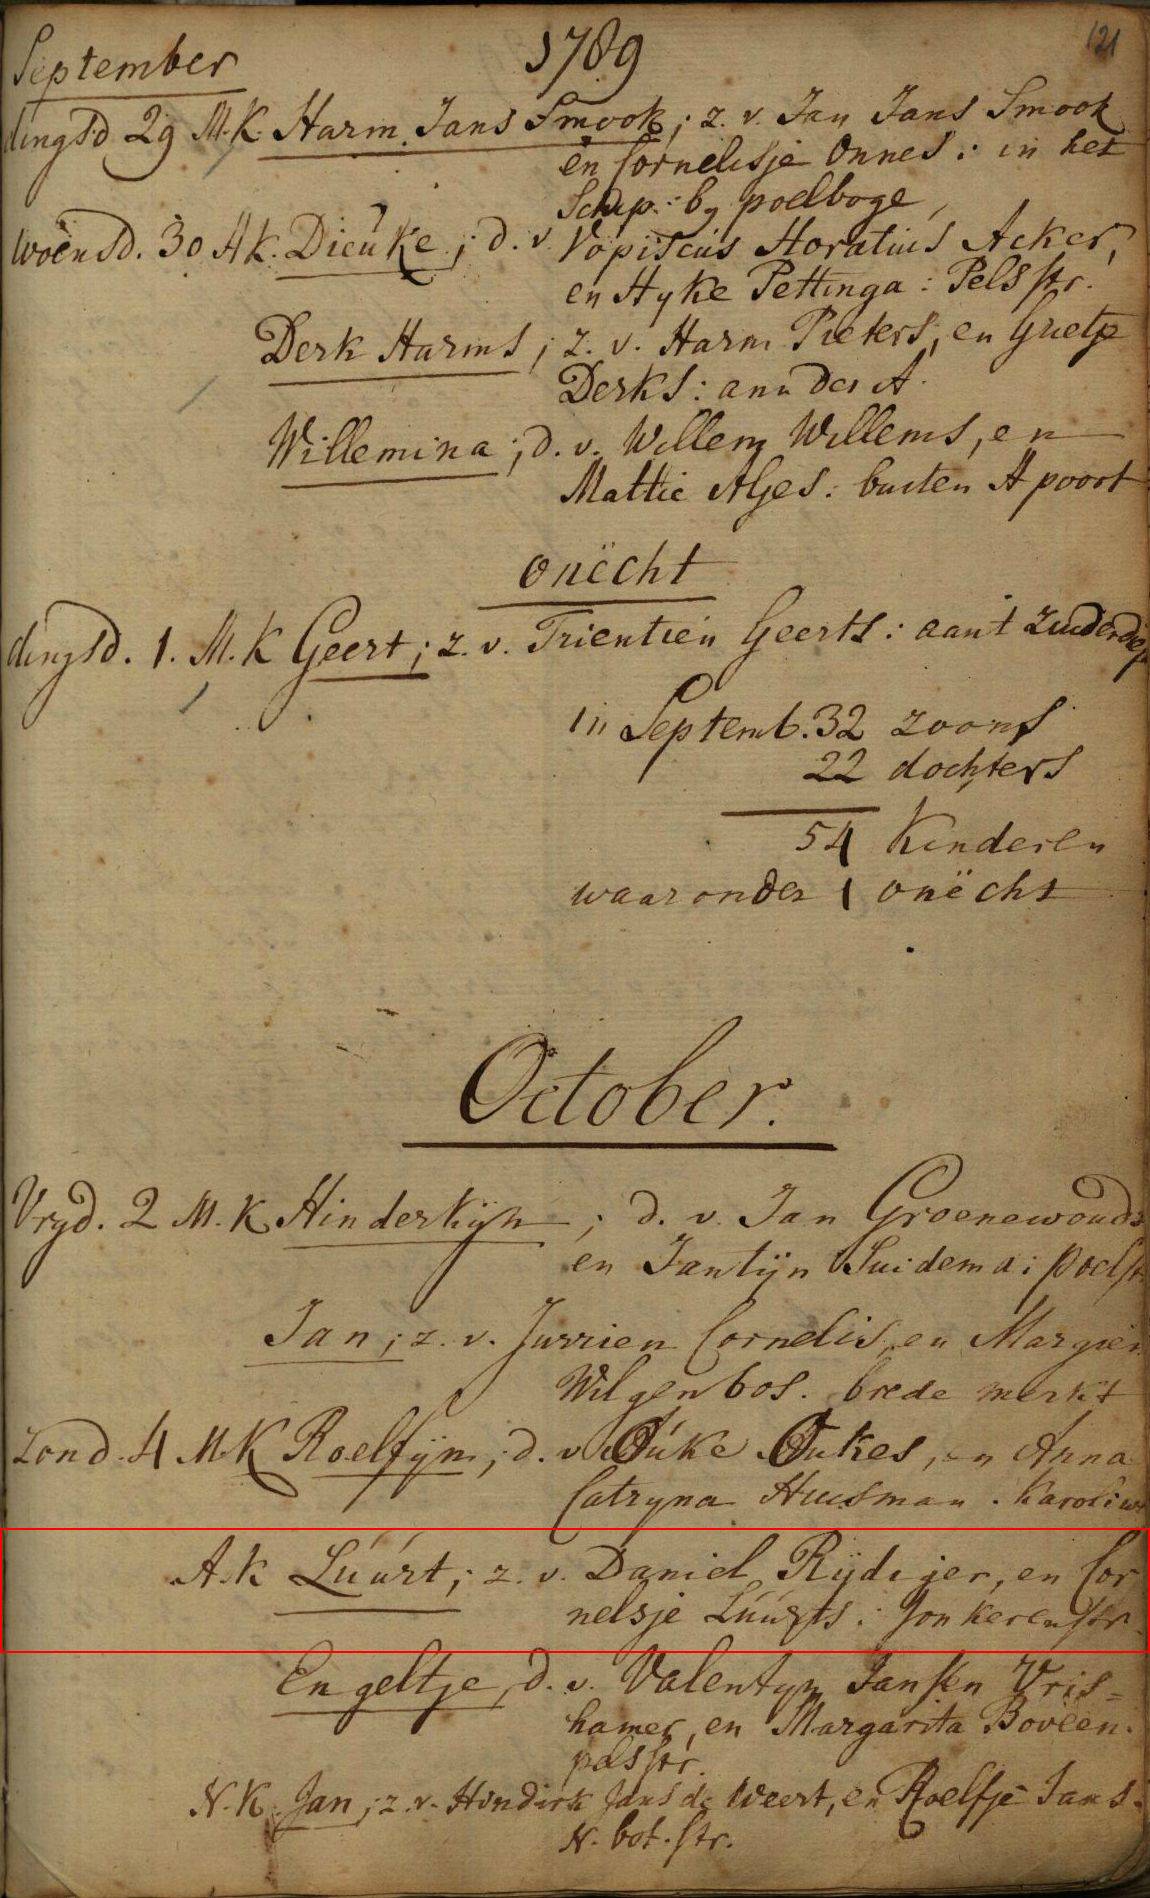 September 1789 121
dingsd 29 M.K. Harm Jans Smook; z. v. Jan Jans Smook
en Cornelisje Onnes: in het
Schip: by poelboge,
woensd. 30 A.K. Dieuke; d. v. Vopiscus Horatius Acker,
en Hyke Pettinga: Pelsstr.
Derk Harms; z. v. Harm Pieters, en Grietje
Derks: aan der A.
Willemina; d. v. Willem Willems, en
Mattie Aljes: buiten A poort
onëcht
dingsd. 1. M.K Geert; z. v. Trientien Geerts: aan't zuiderdiep
in Septemb. 32 zoons
22 dochters
54 Kinderen
waaronder 1 onëcht
October.
Vryd. 2 M.K Hinderkijn; d. v. Jan Groenewoud
en Jantijn Suidema: poelstr.
Jan; z. v. Jurrien Cornelis, en Margien
Wilgenbos. brede merkt
Zond. 4 M.K Roelfijn; d. v. Ouke Oukes, en Anna
Catryna Huisman.
A.k Lúúrt; z. v. Daniel Rijdiger, en Cor
nelsje Lúúrts: Jonkerenstr.
Engeltje, d. v. Valentyn Jansen Vris=
hamer, en Margarita Boveen.
pelsstr.
N.K. Jan; z. v. Hindirk Jans de Weert, en Roelfje Jans.
N. bot. str.